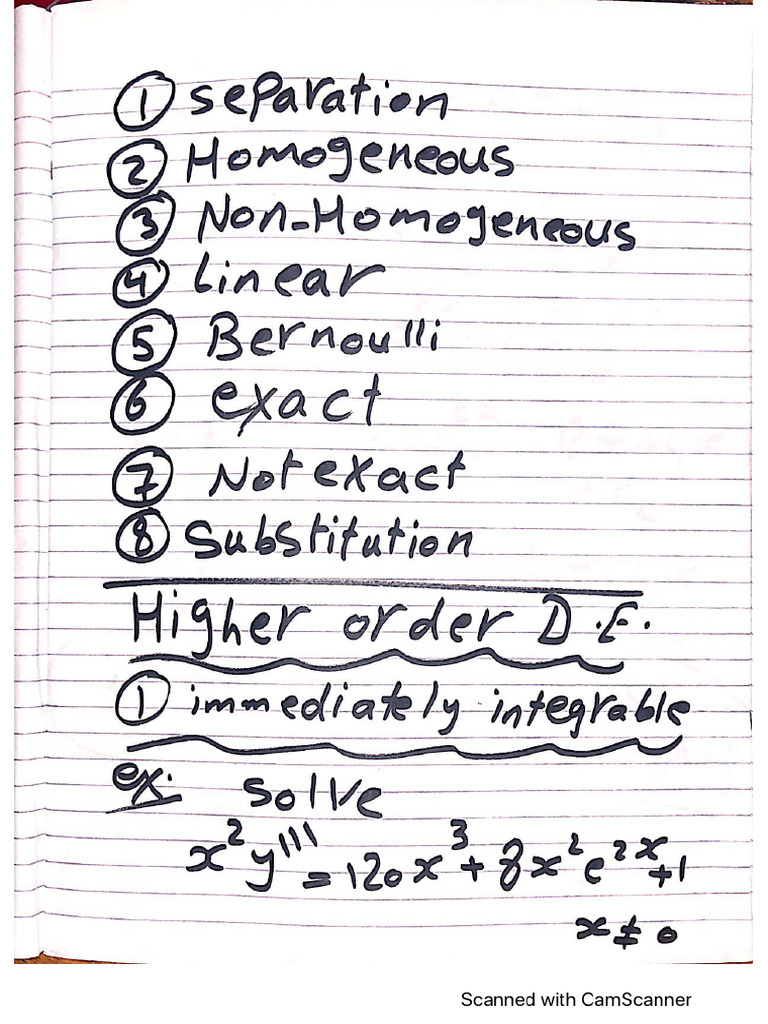 ① separation
② Homogeneous
③ Non-Homogeneous
④ Linear
⑤ Bernoulli
⑥ exact
⑦ Not exact
⑧ Substitution
Higher order D.E.
① immediately integrable
ex. Solve
x²y''' = 120x³ + 8x²e²ˣ + 1
x ≠ 0
Scanned with CamScanner